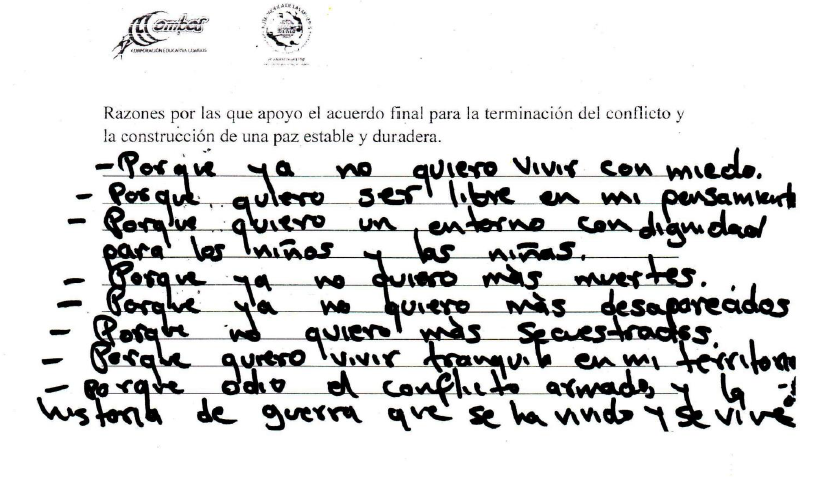 Combos
CORPORACIÓN EDUCATIVA COMBOS
Razones por las que apoyo el acuerdo final para la terminación del conflicto y
la construcción de una paz estable y duradera.
- Porque ya no quiero vivir con miedo.
- Porque quiero ser libre en mi pensamiento
- Porque quiero un entorno con dignidad
para los niños y las niñas.
- Porque ya no quiero más muertes.
- Porque ya no quiero más desaparecidos
- Porque no quiero más secuestrados.
- Porque quiero vivir tranquila en mi territorio
- porque odio el conflicto armado, y la
historia de guerra que se ha vivido y se vive